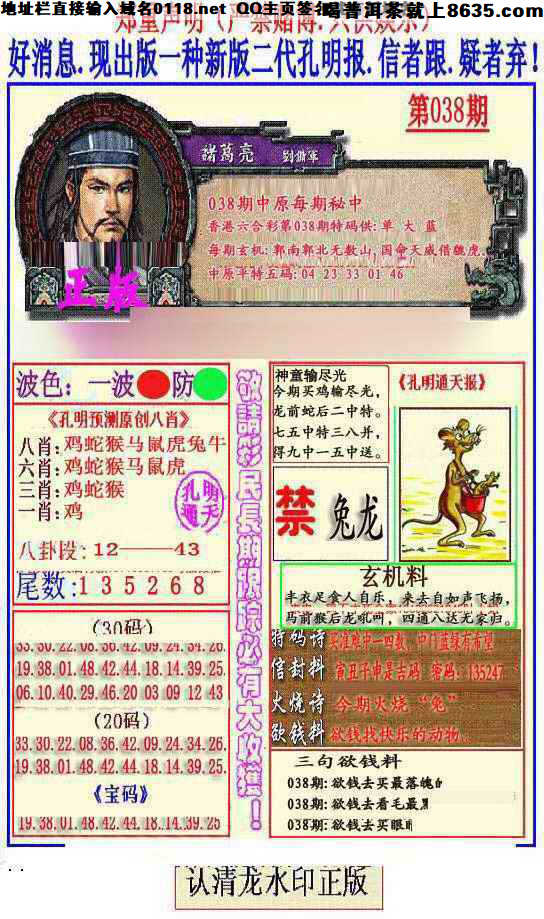 地址栏直接输入域名0118.net QQ主页签名 喝普洱茶就上8635.com
郑重声明（严禁赌博.只供娱乐）
好消息.现出版一种新版二代孔明报.信者跟.疑者弃!
第038期
諸葛亮 劉備軍
038期中原每期秘中
香港六合彩第038期特码供:单 大 蓝
每期玄机:郭南郭北无数山,国命天威借魏虎.
中原平特五码:04 23 33 01 46
正版
波色：一波 防
《孔明预测原创八肖》
八肖:鸡蛇猴马鼠虎兔牛
六肖:鸡蛇猴马鼠虎
三肖:鸡蛇猴
一肖:鸡
孔明通天
八卦段:12——43
尾数:135268
(30码)
33.30.22.08.36.42.09.24.34.26
19.38.01.48.42.44.18.14.39.25
06.10.40.29.46.20 03 09 12 43
(20码)
33.30.22.08.36.42.09.24.34.26.
19.38.01.48.42.44.18.14.39.25.
《宝码》
19.38.01.48.42.44.18.14.39.25
敬請彩民長期跟踪必有大收獲！
神童输尽光
今期买鸡输尽光,
龙前蛇后二中特。
七五中特三八并,
得九中一五中送。
《孔明通天报》
禁 兔龙
玄机料
丰衣足食人自乐，来去自如声飞扬,
马前猴后龙吼叫，四通八达无家归。
特码诗 买准难中一四数，中门蓝绿有希望
信封料 寅丑子申是吉码 密码：135247
火烧诗 今期火烧“兔”
欲钱料 欲钱找快乐的动物.
三句欲钱料
038期:欲钱去买最落魄的
038期:欲钱去看毛最
038期:欲钱去买眼
认清龙水印正版